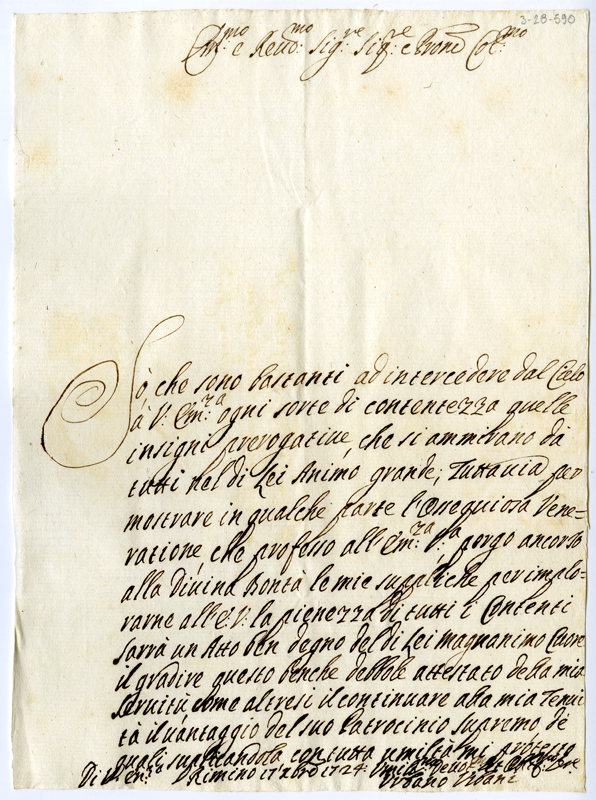 3-28-590
Em:mo e Reud:mo Sig:re Sig:re e Prone Col:mo
Sò che sono bastanti ad intercedere dal Cielo
à V: Em:za ogni sorte di contentezza quelle
insigni prerogative, che si ammirano da
tutti nel di Lei Animo grande; Tuttavia per
mostrare in qualche parte l'Ossequiosa Vene=
ratione, che professo all'Em:za V:a, porgo ancor Io
alla Divina Bontà le mie suppliche per implo=
rarne all'E: V: la pienezza di tutti i Contenti
Sarrà un Atto ben degno del di Lei magnanimo Cuore
il gradire questo benche debbole attestato della mia
Servitù, come altresi il continuare alla mia Tenui
tà il vantaggio del suo Patrocinio supremo de
quali supplicandola con tutta umiltà mi protesto
Di V: Em:za Rimino 17 Xbre 1724: Umil:mo Deuo:mo
Urbano Urbani